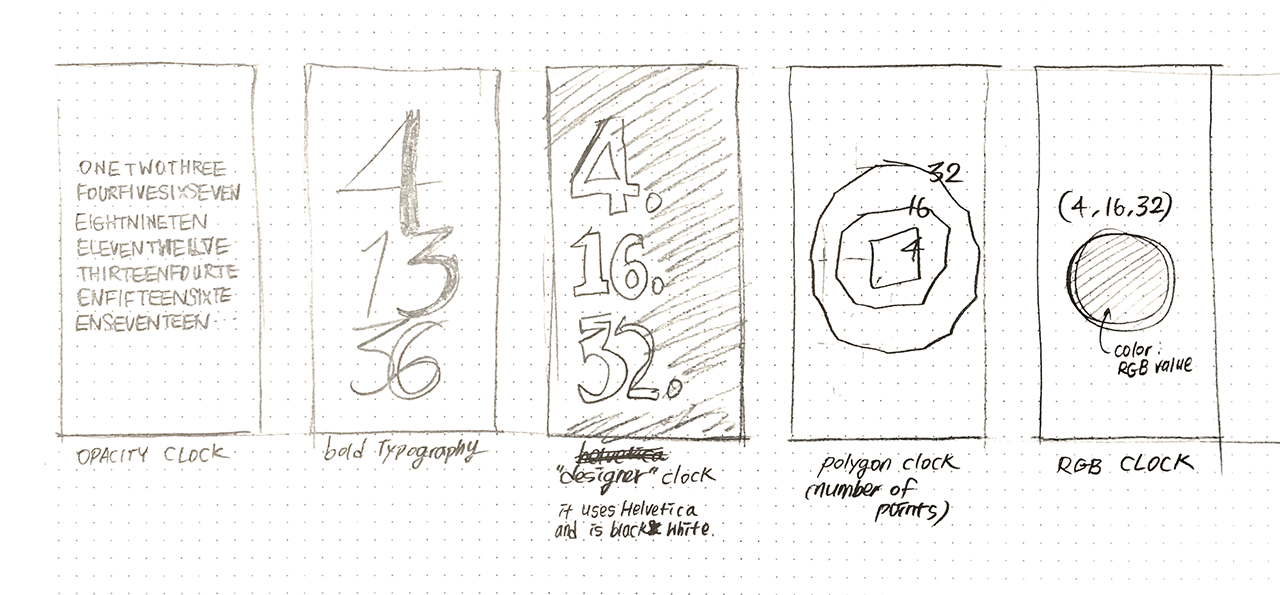 ONETWOTHREE
FOURFIVESIXSEVEN
EIGHTNINETEN
ELEVENTWELVE
THIRTEENFOURTE
ENFIFTEENSIXTE
ENSEVENTEEN...
OPACITY CLOCK
4
13
36
bold Typography
4.
16.
32.
helvetica
"designer" clock
it uses Helvetica
and is black & white.
32
16
4
polygon clock
(number of
points)
(4,16,32)
color:
RGB value
RGB CLOCK